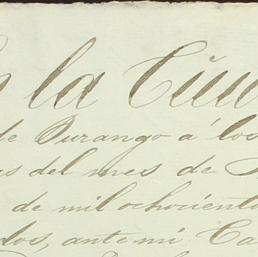 la Ciu
de Durango á los
del mes de
de mil ochocient
dos, ante mi Ca